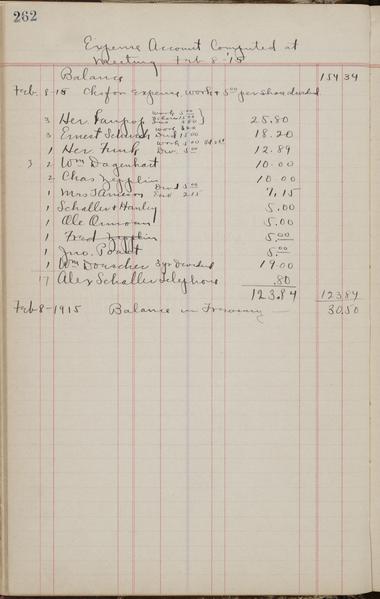 262
Expense Account Computed at
Meeting Feb 8-'15
Balance 154 34
Feb. 8-15 Chs for Expense, work & 5.00 per share divided
3 Her. work 5.00 25.80
3 Ernest work Div'd 15.00 18.20
1 Her. Funk work 5.00 Div. 5.00 12.89
3 2 Wm Dagenhart 10.00
2 Chas. Zepplin 10.00
1 Mrs Div'd 5.00 2.15 7.15
1 Schaller & Hanley 5.00
1 Ole 5.00
1 Fred Zepplin 5.00
1 Jno. 5.00
1 Wm Dorscher 3 yr Divided 19.00
17 Alex Schaller Telephone .80
123.84 123 84
Feb 8-1915 Balance in Treasury 30.50